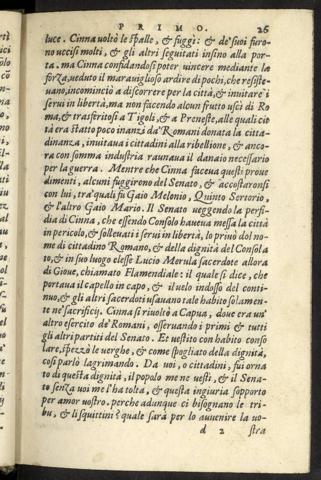 PRIMO. 26
luce. Cinna voltò le spalle, & fuggì: & de' suoi furo-
no uccisi molti, & gli altri seguitati insino alla por-
ta. ma Cinna confidandosi poter vincere mediante lo
forza, veduto il maraviglioso ardire di pochi, che resiste-
vano, incominciò a discorrere per la città, & invitare i
servi in libertà, ma non facendo alcun frutto uscì di Ro
ma, & trasferitosi a Tigoli, & a Preneste, alle quali cit
tà era stato poco inanzi da' Romani donata la citta-
dinanza, invitava i cittadini alla ribellione, & anco-
ra con somma industria raunava il danaio necessario
per la guerra. Mentre che Cinna faceva questi prove
dimenti, alcuni fuggirono del Senato, & accostaronsi
con lui, tra' quali fu Gaio Melonio, Quinto Sertorio,
& l'altro Gaio Mario. Il Senato veggendo la perfi-
dia di Cinna, che essendo Consolo haveva messa la città
in pericolo, & sollevati i servi in libertà, lo privò del no-
me di cittadino Romano, & della dignità del Consola
to, & in suo luogo elesse Lucio Merula sacerdote allora
di Giove, chiamato Flamendiale: il quale si dice, che
portava il capello in capo, & il velo indosso del conti-
nuo, & gli altri sacerdoti usavano tale habito solamen-
te ne' sacrificij. Cinna si rivolò a Capua, dove era un'
altro esercito de' Romani, osservando i primi & tutti
gli altri partiti del Senato. Et vestito con habito conso
lare, spezzò le verghe, & come spogliato della dignità,
così parlò lagrimando. Da voi, o cittadini, fui orna
to di questa dignità, il popolo me ne vestì, & il Sena-
to senza voi me l'ha tolta, & questa ingiuria sopporto
per amor vostro. perche adunque ci bisognano le tri-
bu, & li squittini? quale sarà per lo avvenire la vo-
d 2 stra